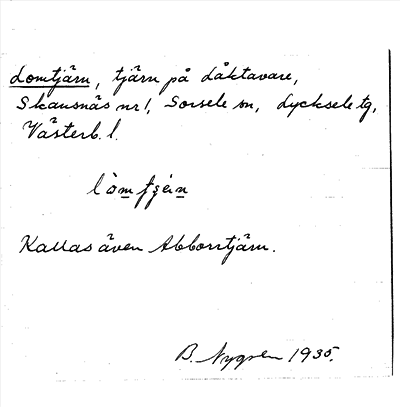 Lomtjärn, tjärn på Låktavare,
Skansnäs nr 1, Sorsele sn, Lycksele tg,
Västerb. l.
Kallas även Abborrtjärn.
B. Nygren 1935.